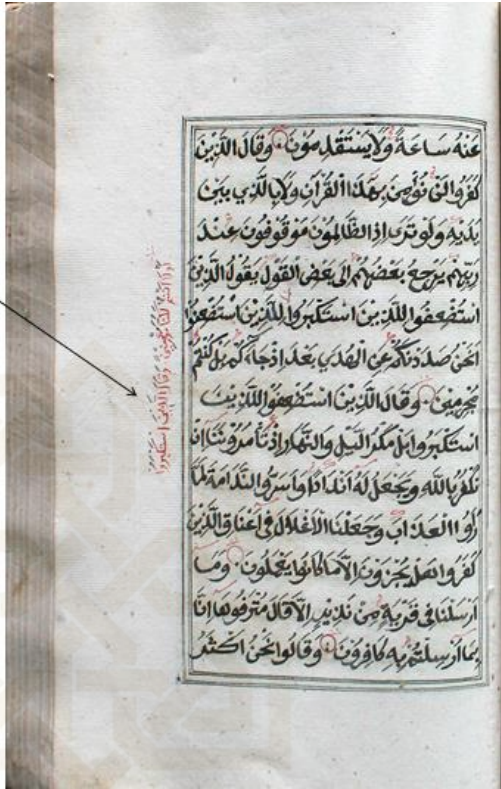 عَنْهُ سَاعَةً وَلَا يَسْتَقْدِمُوْنَ وَقَالَ الَّذِيْنَ
كَفَرُوا لَنْ نُؤْمِنَ بِهٰذَا الْقُرْآنِ وَلَا بِالَّذِي بَيْنَ
يَدَيْهِ وَلَوْ تَرَى اِذِ الظَّالِمُوْنَ مَوْقُوْفُوْنَ عِنْدَ
رَبِّهِمْ يَرْجِعُ بَعْضُهُمْ اِلَى بَعْضٍ الْقَوْلَ يَقُوْلُ الَّذِيْنَ
اسْتُضْعِفُوا لِلَّذِيْنَ اسْتَكْبَرُوا لِلَّذِيْنَ اسْتُضْعِفُوا
اَنَحْنُ صَدَدْنٰكُمْ عَنِ الْهُدَى بَعْدَ اِذْ جَآءَكُمْ بَلْ كُنْتُمْ
مُجْرِمِيْنَ وَقَالَ الَّذِيْنَ اسْتُضْعِفُوا لِلَّذِيْنَ
اسْتَكْبَرُوا بَلْ مَكْرُ الَّيْلِ وَالنَّهَارِ اِذْ تَأْمُرُوْنَنَا اَنْ
نَكْفُرَ بِاللّٰهِ وَنَجْعَلَ لَهُ اَنْدَادًا وَاَسَرُّوا النَّدَامَةَ لَمَّا
رَاَوُا الْعَذَابَ وَجَعَلْنَا الْاَغْلَالَ فِى اَعْنَاقِ الَّذِيْنَ
كَفَرُوا هَلْ يُجْزَوْنَ اِلَّا مَا كَانُوا يَعْمَلُوْنَ وَمَا
اَرْسَلْنَا فِى قَرْيَةٍ مِنْ نَذِيْرٍ اِلَّا قَالَ مُتْرَفُوْهَا اِنَّا
بِمَا اُرْسِلْتُمْ بِهِ كَافِرُوْنَ وَقَالُوا نَحْنُ اَكْثَرُ
لولا انتم لكنا مؤمنين وقال الذين استكبروا